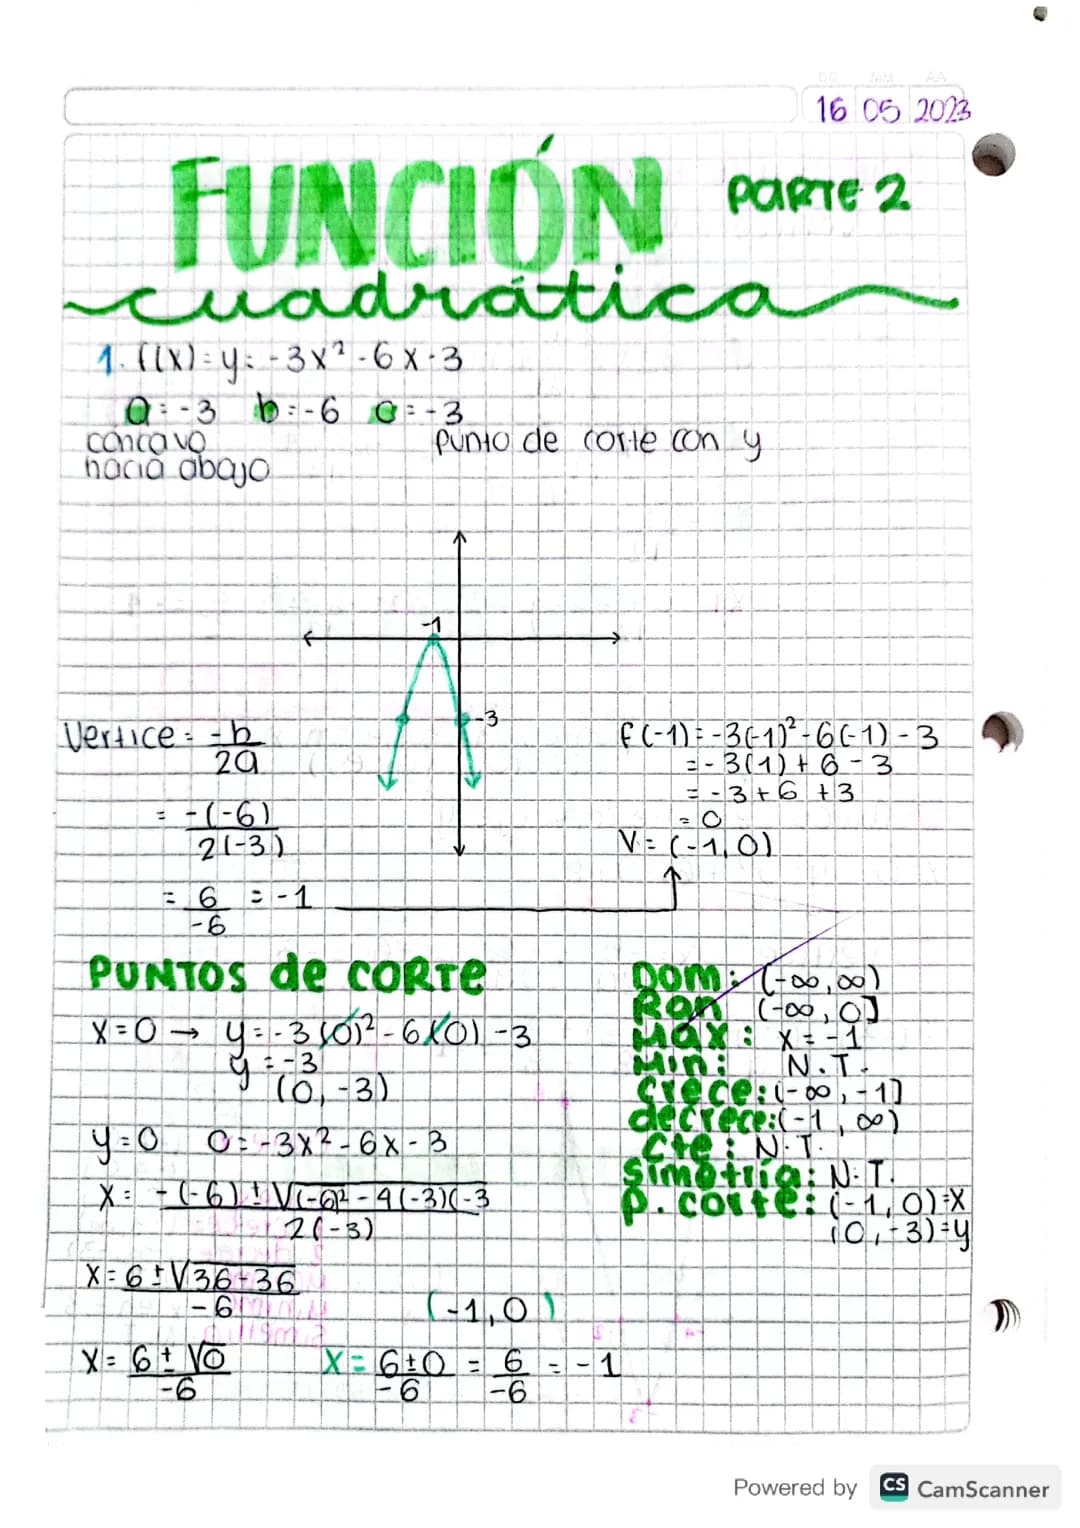 DD MM AA
16 05 2023
FUNCIÓN PARTE 2
cuadrática
1. f(x) = y = -3x² - 6x - 3
a = -3 b = -6 c = -3
concavo
hacia abajo
Punto de corte con y
-1
-3
Vertice = -b/2a
= -(-6)/2(-3)
= 6/-6 = -1
f(-1) = -3(-1)² - 6(-1) - 3
= -3(1) + 6 - 3
= -3 + 6 + 3
= 0
V = (-1, 0)
PUNTOS de CORTE
x = 0 → y = -3(0)² - 6(0) - 3
y = -3
(0, -3)
y = 0 0 = -3x² - 6x - 3
x = -(-6) ± √(-6)² - 4(-3)(-3 / 2(-3)
x = 6 ± √36-36 / -6
(-1, 0)
x = 6 ± √0 / -6 x = 6±0 / -6 = 6/-6 = -1
Dom: (-∞, ∞)
Ran (-∞, 0]
Max: x = -1
Min: N.T.
crece: (-∞, -1]
decrece: (-1, ∞)
Cte: N.T.
Simetría: N.T.
P. corte: (-1, 0) = x
(0, -3) = y
Powered by CS CamScanner